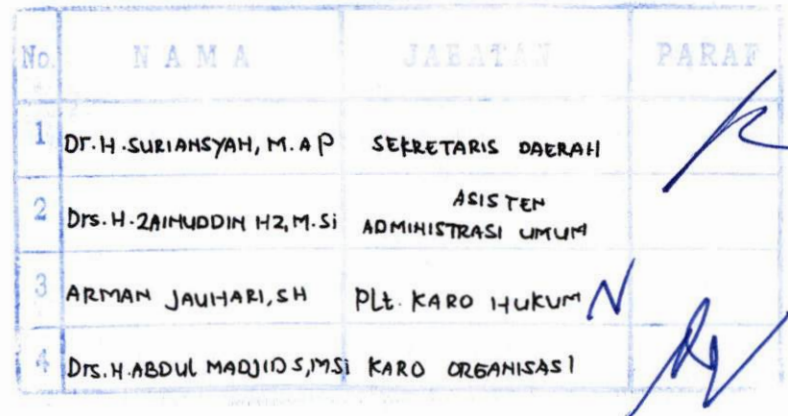 No. N A M A JABATAN PARAF
1 Dr. H. SURIANSYAH, M. AP SEKRETARIS DAERAH
2 Drs. H. ZAINUDDIN HZ, M. Si ASISTEN
ADMINISTRASI UMUM
3 ARMAN JAUHARI, SH PLt. KARO HUKUM
4 Drs. H. ABDUL MADJID S, M.Si KARO ORGANISASI